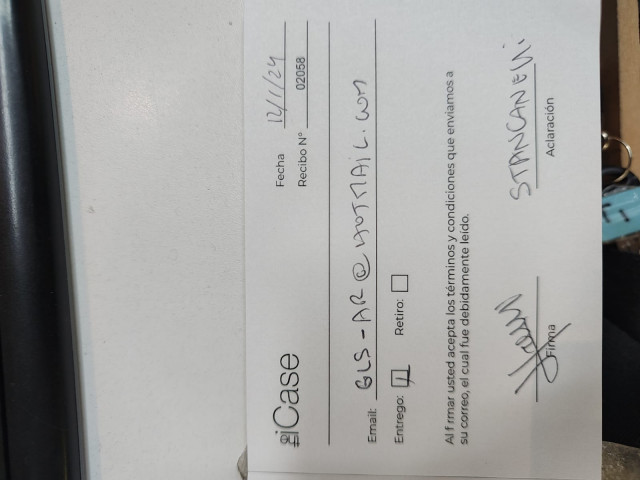 iCase
Fecha 12/1/24
Recibo N° 02058
Email: GLS-AR@HOTMAIL.COM
Entrego: Retiro:
Al firmar usted acepta los términos y condiciones que enviamos a
su correo, el cual fue debidamente leído.
STANCANELLI.
Firma Aclaración